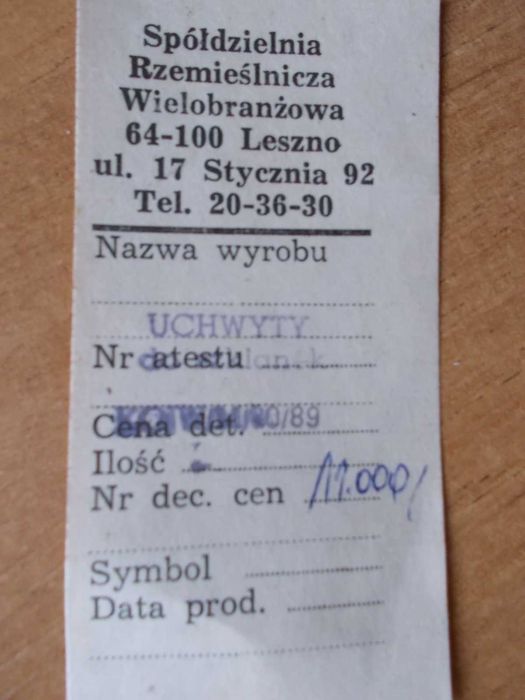 Spółdzielnia
Rzemieślnicza
Wielobranżowa
64-100 Leszno
ul. 17 Stycznia 92
Tel. 20-36-30
Nazwa wyrobu
UCHWYTY
Nr atestu do szklanek
Cena det. /89
Ilość
Nr dec. cen /17.000/
Symbol
Data prod.